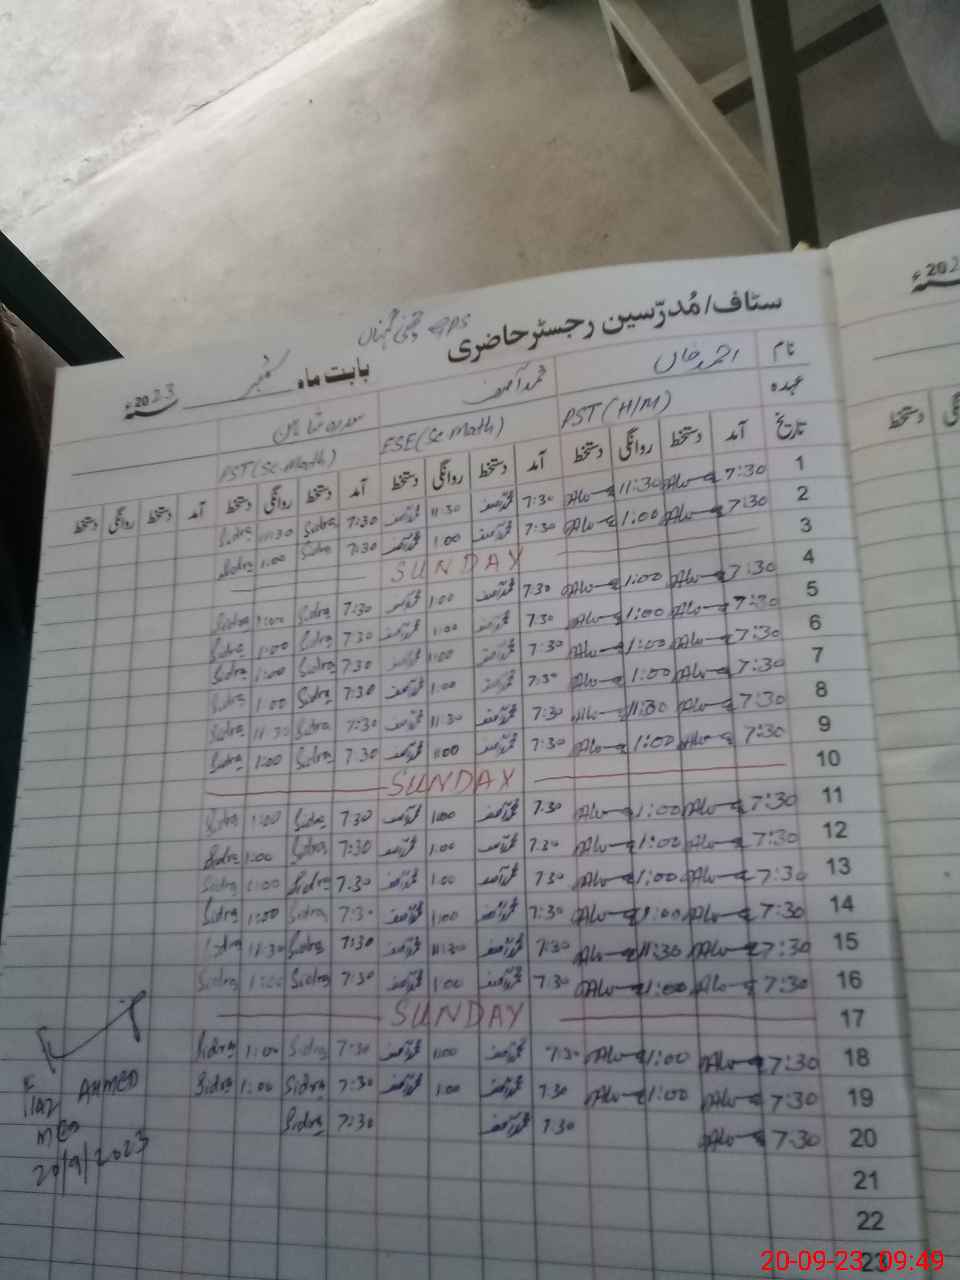 سٹاف/مُدرّسین رجسٹر حاضری GPS
بابت ماہ ستمبر 2023ء
نام احمد خان محمد آصف
عہدہ PST (H/M) ESE (Sc Math) PST (Sc. Math)
تاریخ آمد دستخط روانگی دستخط آمد دستخط روانگی دستخط آمد دستخط روانگی دستخط آمد دستخط روانگی دستخط
1 7:30 11:30 7:30 محمد آصف 11:30 محمد آصف 7:30 Sidra 11:30 Sidra
2 7:30 1:00 7:30 محمد آصف 1:00 محمد آصف 7:30 Sidra 1:00 Sidra
3 SUNDAY
4 7:30 1:00 7:30 محمد آصف 1:00 محمد آصف 7:30 Sidra 1:00 Sidra
5 7:30 1:00 7:30 محمد آصف 1:00 محمد آصف 7:30 Sidra 1:00 Sidra
6 7:30 1:00 7:30 محمد آصف 1:00 محمد آصف 7:30 Sidra 1:00 Sidra
7 7:30 1:00 7:30 محمد آصف 1:00 محمد آصف 7:30 Sidra 1:00 Sidra
8 7:30 11:30 7:30 محمد آصف 11:30 محمد آصف 7:30 Sidra 11:30 Sidra
9 7:30 1:00 7:30 محمد آصف 1:00 محمد آصف 7:30 Sidra 1:00 Sidra
10 SUNDAY
11 7:30 1:00 7:30 محمد آصف 1:00 محمد آصف 7:30 Sidra 1:00 Sidra
12 7:30 1:00 7:30 محمد آصف 1:00 محمد آصف 7:30 Sidra 1:00 Sidra
13 7:30 1:00 7:30 محمد آصف 1:00 محمد آصف 7:30 Sidra 1:00 Sidra
14 7:30 1:00 7:30 محمد آصف 1:00 محمد آصف 7:30 Sidra 1:00 Sidra
15 7:30 11:30 7:30 محمد آصف 11:30 محمد آصف 7:30 Sidra 11:30 Sidra
16 7:30 1:00 7:30 محمد آصف 1:00 محمد آصف 7:30 Sidra 1:00 Sidra
17 SUNDAY
18 7:30 1:00 7:30 محمد آصف 1:00 محمد آصف 7:30 Sidra 1:00 Sidra
19 7:30 1:00 7:30 محمد آصف 1:00 محمد آصف 7:30 Sidra 1:00 Sidra
20 7:30 7:30 محمد آصف 7:30 Sidra
21
22
23
AHMED
20/9/2023
دستخط
20-09-23 09:49